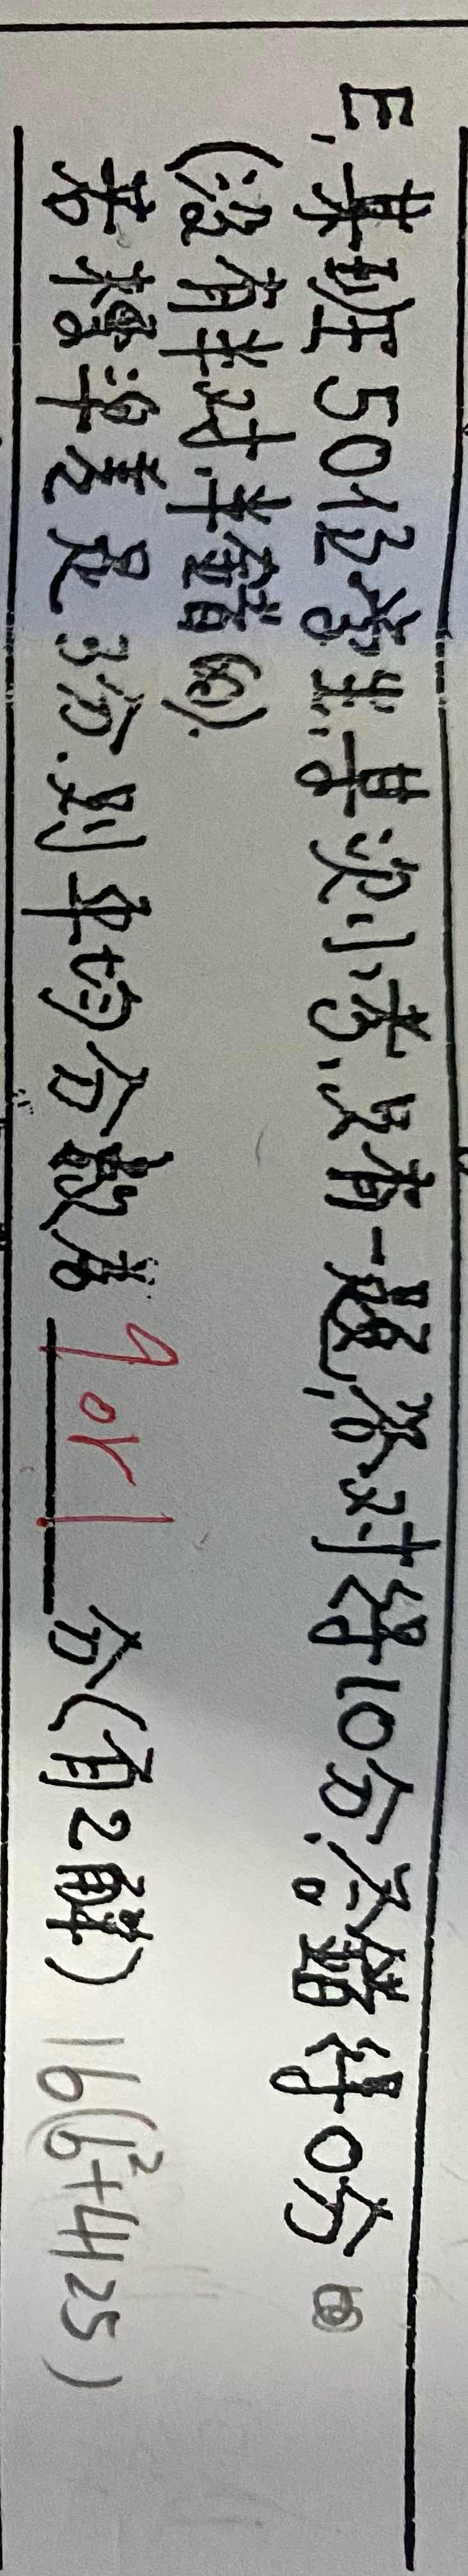 E. 某班50位學生,某次小考,只有一題,答對得10分,答錯得0分
(沒有半对.半錯的).
若標準差是3分.則平均分數為 9 or 1 分(有2解) 16(6²+425)